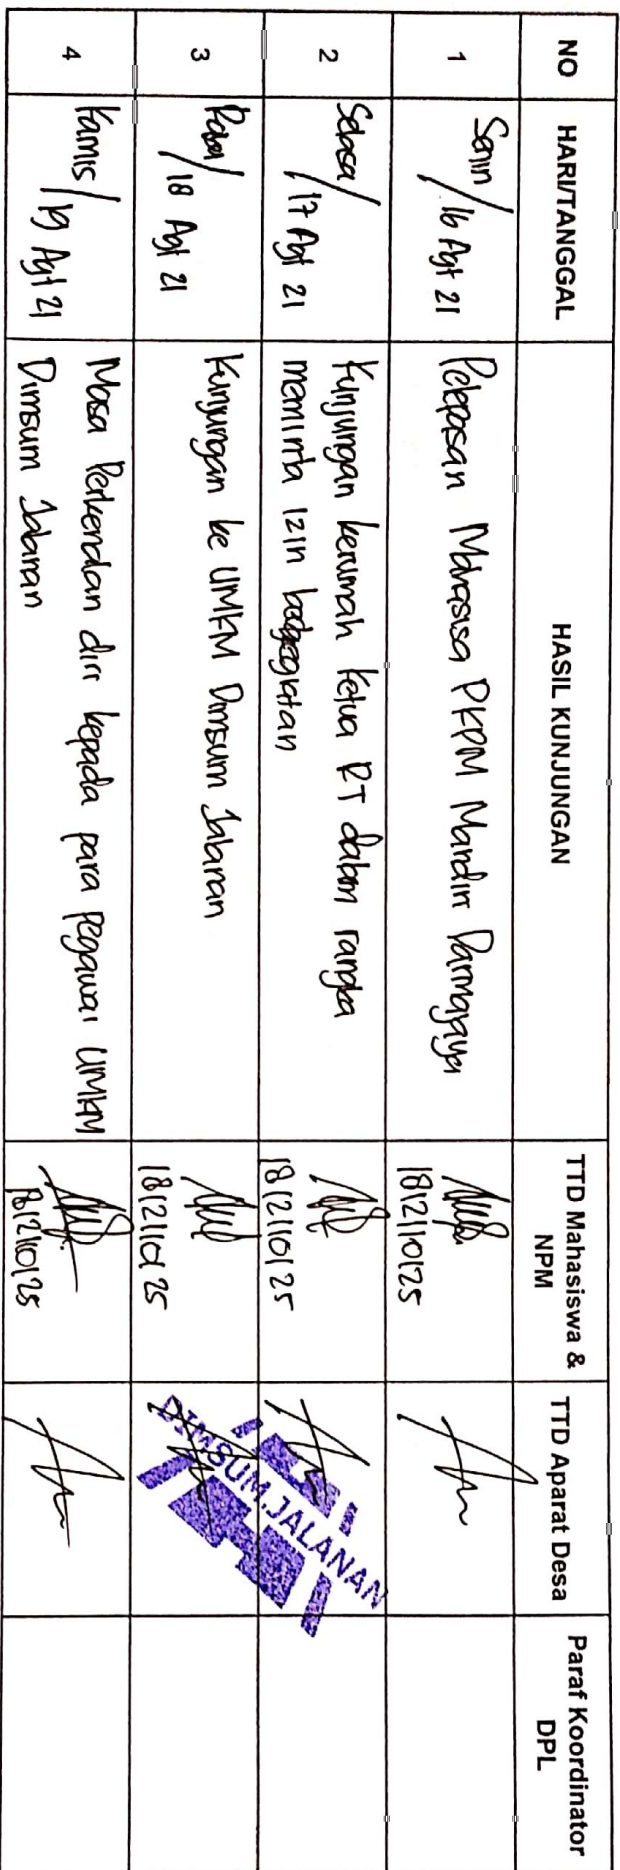 NO
HARI/TANGGAL
HASIL KUNJUNGAN
TTD Mahasiswa &
NPM
TTD Aparat Desa
Paraf Koordinator
DPL
1
Senin/
16 Agt 21
Pelepasan Mahasiswa PKPM Mandiri Darmajaya
1812110125
2
Selasa/
17 Agt 21
Kunjungan kerumah Ketua RT dalam rangka
meminta izin berkegiatan
1812110125
3
Rabu/
18 Agt 21
Kunjungan ke UMKM Dimsum Jalanan
1812110125
DIMSUM.JALANAN
4
Kamis/
19 Agt 21
Masa Perkenalan diri kepada para Pegawai UMKM
Dimsum Jalanan
1812110125